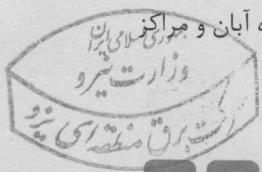 ه آبان و مراکز
جمهوری اسلامی ایران
وزارت نیرو
شرکت برق منطقه ای یزد